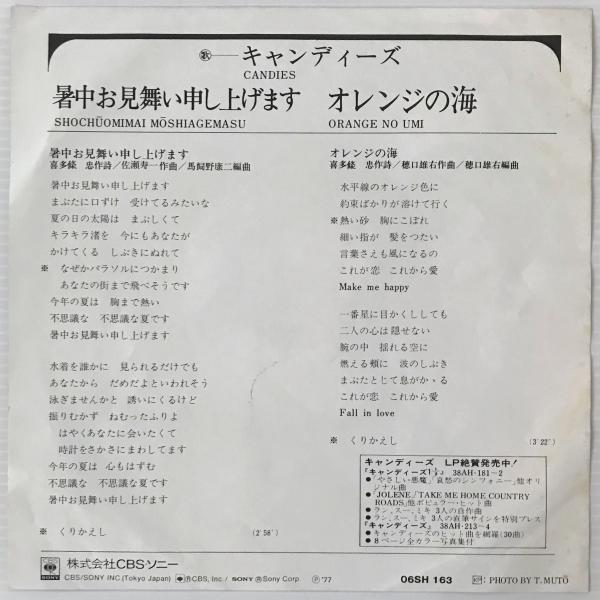 歌──キャンディーズ
CANDIES
暑中お見舞い申し上げます
SHOCHŪOMIMAI MŌSHIAGEMASU
オレンジの海
ORANGE NO UMI
暑中お見舞い申し上げます
喜多條 忠作詩/佐瀬寿一作曲/馬飼野康二編曲
暑中お見舞い申し上げます
まぶたに口ずけ 受けてるみたいな
夏の日の太陽は まぶしくて
キラキラ渚を 今にもあなたが
かけてくる しぶきにぬれて
※ なぜかパラソルにつかまり
あなたの街まで飛べそうです
今年の夏は 胸まで熱い
不思議な 不思議な夏です
暑中お見舞い申し上げます
水着を誰かに 見られるだけでも
あなたから だめだよといわれそう
泳ぎませんかと 誘いにくるけど
振りむかず ねむったふりよ
はやくあなたに会いたくて
時計をさかさにまわしてます
今年の夏は 心もはずむ
不思議な 不思議な夏です
暑中お見舞い申し上げます
※ くりかえし (2′58″)
オレンジの海
喜多條 忠作詩/穂口雄右作曲/穂口雄右編曲
水平線のオレンジ色に
約束ばかりが溶けて行く
※熱い砂 胸にこぼれ
細い指が 髪をつたい
言葉さえも風になるの
これが恋 これから愛
Make me happy
一番星に目かくししても
二人の心は隠せない
腕の中 揺れる空に
燃える頬に 波のしぶき
まぶたとじて息がかゝる
これが恋 これから愛
Fall in love
※ くりかえし (3′22″)
キャンディーズ LP絶賛発売中!
『キャンディーズ1½』 38AH-181~2
●「やさしい悪魔」「哀愁のシンフォニー」他オリジナル曲
●「JOLENE」「TAKE ME HOME COUNTRY
ROADS」他ポピュラー・ヒット曲
●ラン、スー、ミキ 3人の自作曲
●ラン、スー、ミキ 3人の直筆サインを特別プレス
『キャンディーズ』 38AH-213~4
●キャンディーズのヒット曲を網羅(30曲)
●8ページ全カラー写真集付
CBS SONY
株式会社CBS・ソニー
CBS/SONY INC.(Tokyo Japan) ®CBS, Inc./SONY ®Sony Corp. ℗'77
06SH 163
PHOTO BY T. MUTŌ